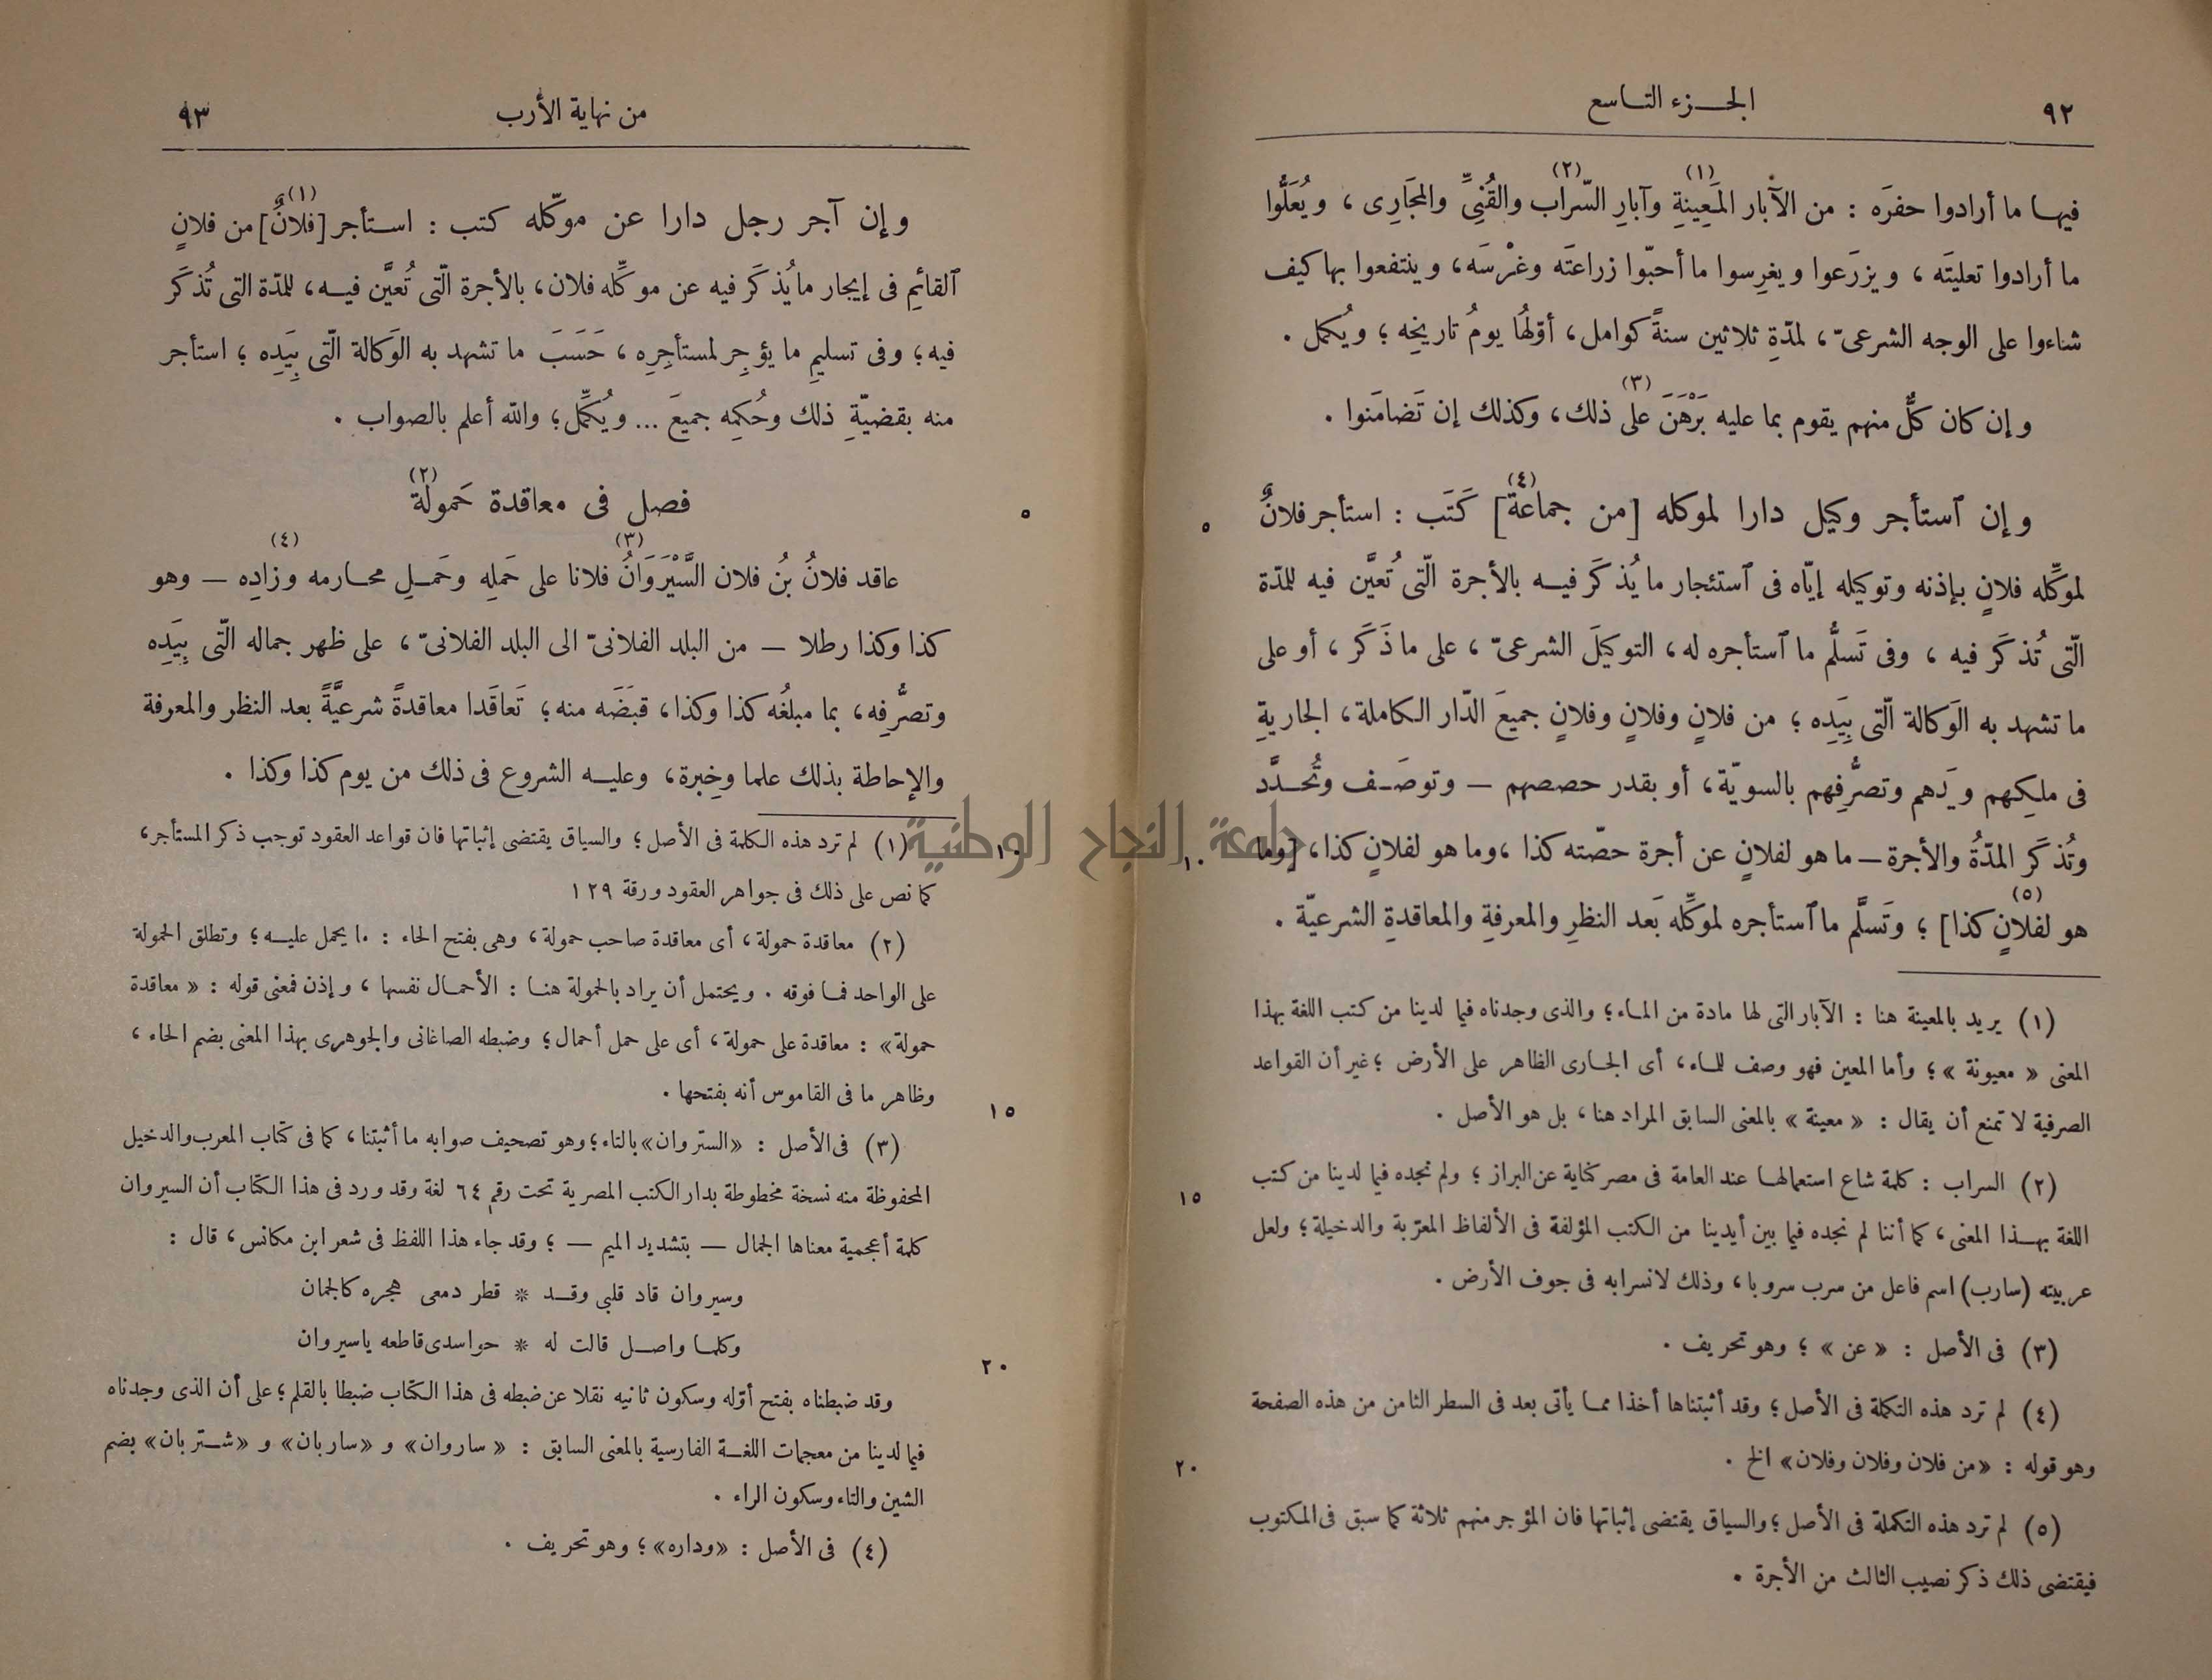 ٩٢
الجـــزء التـاسع
فيهـا ما أرادوا حفرَه : من الآبار المَعِينةِ (١) وآبارِ السّراب (٢) والقُنِىِّ والمَجَارِى ، ويُعَلُّوا
ما أرادوا تعليتَه ، ويزرَعوا ويغرِسوا ما أحبّوا زراعتَه وغرْسَه، وينتفعوا بها كيف
شاءوا على الوجه الشرعىّ ، لمدّةِ ثلاثين سنةً كوامل، أوّلُها يومُ تاريخِه ؛ ويُكمل .
وإن كان كلٌّ منهم يقوم بما عليه بَرْهَنَ على (٣) ذلك، وكذلك إن تَضامَنوا .
٥
وإن ٱستأجر وكيل دارا لموكله [من جماعة (٤)] كَتَب : استأجر فلانٌ
لموكِّله فلانٍ بإذنه وتوكيله إيّاه فى ٱستئجار ما يُذكَر فيـه بالأجرة الّتى تُعيَّن فيه للمدّة
الّتى تُذكَر فيه ، وفى تَسلُّم ما ٱستأجره له، التوكيلَ الشرعىّ ، على ما ذَكَر ، أو على
ما تشهد به الوَكالة الّتى بِيَدِه ؛ من فلانٍ وفلانٍ وفلانٍ جميعَ الدّار الكاملة، الجاريةِ
فى ملكِهم ويَدهم وتصرُّفِهم بالسويّة، أو بقدر حصصهم — وتوصَـف وتُحـدَّد
١٠
وتُذكَر المدّةُ والأجرة — ما هو لفلانٍ عن أجرة حصّته كذا ،وما هو لفلانٍ كذا، [وما
هو لفلانٍ (٥) كذا] ؛ وتَسلَّم ما ٱستأجره لموكِّله بَعد النظرِ والمعرفةِ والمعاقدةِ الشرعيّة .
(١) يريد بالمعينة هنا : الآبار التى لها مادة من المـاء؛ والذى وجدناه فيما لدينا من كتب اللغة بهذا
المعنى « معيونة »؛ وأما المعين فهو وصف للـاء، أى الجـارى الظاهر على الأرض ؛ غير أن القواعد
الصرفية لا تمنع أن يقال : « معينة » بالمعنى السابق المراد هنا، بل هو الأصل .
(٢) السراب : كلمة شاع استعمالهـا عند العامة فى مصر كناية عن البراز ؛ ولم نجده فيما لدينا من كتب
١٥
اللغة بهـذا المعنى ، كما أننا لم نجده فيما بين أيدينا من الكتب المؤلفة فى الألفاظ المعرّبة والدخيلة؛ ولعل
عربيته (سارب) اسم فاعل من سرب سروبا، وذلك لانسرابه فى جوف الأرض .
(٣) فى الأصل : « عن » ؛ وهو تحريف .
(٤) لم ترد هذه التكملة فى الأصل؛ وقد أثبتناها أخذا ممـا يأتى بعد فى السطر الثامن من هذه الصفحة
وهو قوله : «من فلان وفلان وفلان» الخ .
٢٠
(٥) لم ترد هذه التكملة فى الأصل ؛ والسياق يقتضى إثباتها فان المؤجر منهم ثلاثة كما سبق فى المكتوب
فيقتضى ذلك ذكر نصيب الثالث من الأجرة .
من نهاية الأرب
٩٣
وإن آجر رجل دارا عن موكّله كتب : استأجر [فلانٌ (١)] من فلانٍ
ٱلقائمِ فى إيجار ما يُذكَر فيه عن موكِّله فلان، بالأجرة الّتى تُعيَّن فيـه، للمدّة التى تُذكَر
فيه؛ وفى تسليمِ ما يؤجِر لمستأجِرِه ، حَسَبَ ما تشهد به الوَكالة الّتى بِيَدِه ؛ استأجر
منه بقضيّةِ ذلك وحُكمِه جميعَ ... ويُكمِّل؛ والله أعلم بالصواب .
فصل فى معاقدة حَمولة (٢)
٥
عاقد فلانُ بنُ فلان السَّيْرَوَانُ (٣) فلانا على حَملِه وحَمـلِ محـارمه وزادِه (٤) — وهو
كذا وكذا رطلا — من البلد الفلانىّ الى البلد الفلانىّ ، على ظهر جماله الّتى بِيَدِه
وتصرُّفِه، بما مبلغُه كذا وكذا، قبَضَه منه؛ تَعاقَدا معاقدةً شرعيَّةً بعد النظر والمعرفة
والإحاطة بذلك علما وخِبرة، وعليـه الشروع فى ذلك من يوم كذا وكذا .
(١) لم ترد هذه الكلمة فى الأصل؛ والسياق يقتضى إثباتها فان قواعد العقود توجب ذكر المستأجر،
١٠
كما نص على ذلك فى جواهر العقود ورقة ١٢٩
(٢) معاقدة حمولة، أى معاقدة صاحب حمولة، وهى بفتح الحاء : ما يحمل عليـه؛ وتطلق الحمولة
على الواحد فمـا فوقه . ويحتمل أن يراد بالحمولة هنـا : الأحمـال نفسها ، وإذن فمعنى قوله : « معاقدة
حمولة» : معاقدة على حمولة، أى على حمل أحمال؛ وضبطه الصاغانى والجوهرى بهذا المعنى بضم الحاء ،
وظاهر ما فى القاموس أنه بفتحها .
١٥
(٣) فى الأصل : «الستروان» بالتاء؛ وهو تصحيف صوابه ما أثبتنا، كما فى كتاب المعرب والدخيل
المحفوظة منه نسخة مخطوطة بدار الكتب المصرية تحت رقم ٦٤ لغة وقد ورد فى هذا الكتاب أن السيروان
كلمة أعجمية معناها الجمال — بتشديد الميم — ؛ وقد جاء هذا اللفظ فى شعر ابن مكانس، قال :
وسيروان قاد قلبى وقـد * قطر دمعى هجره كالجمان
وكلمـا واصـل قالت له * حواسدى قاطعه ياسيروان
٢٠
وقد ضبطناه بفتح أوّله وسكون ثانيه نقلا عن ضبطه فى هذا الكتاب ضبطا بالقلم؛ على أن الذى وجدناه
فيما لدينا من معجمات اللغـة الفارسية بالمعنى السابق : « ساروان» و «ساربان» و «شـتربان» بضم
الشين والتاء وسكون الراء .
(٤) فى الأصل : «وداره»؛ وهو تحريف .
جامعة النجاح الوطنية